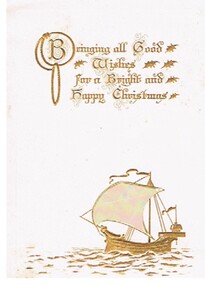 Bringing all Good
Wishes
for a Bright and
Happy Christmas